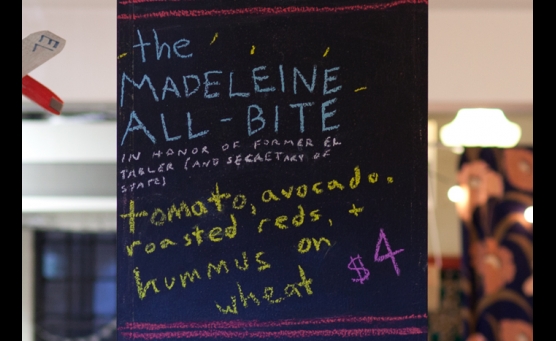 the
MADELEINE
ALL-BITE
IN HONOR OF FORMER EL
TABLER (AND SECRETARY OF
STATE)
tomato, avocado.
roasted reds, +
hummus on
wheat
$4